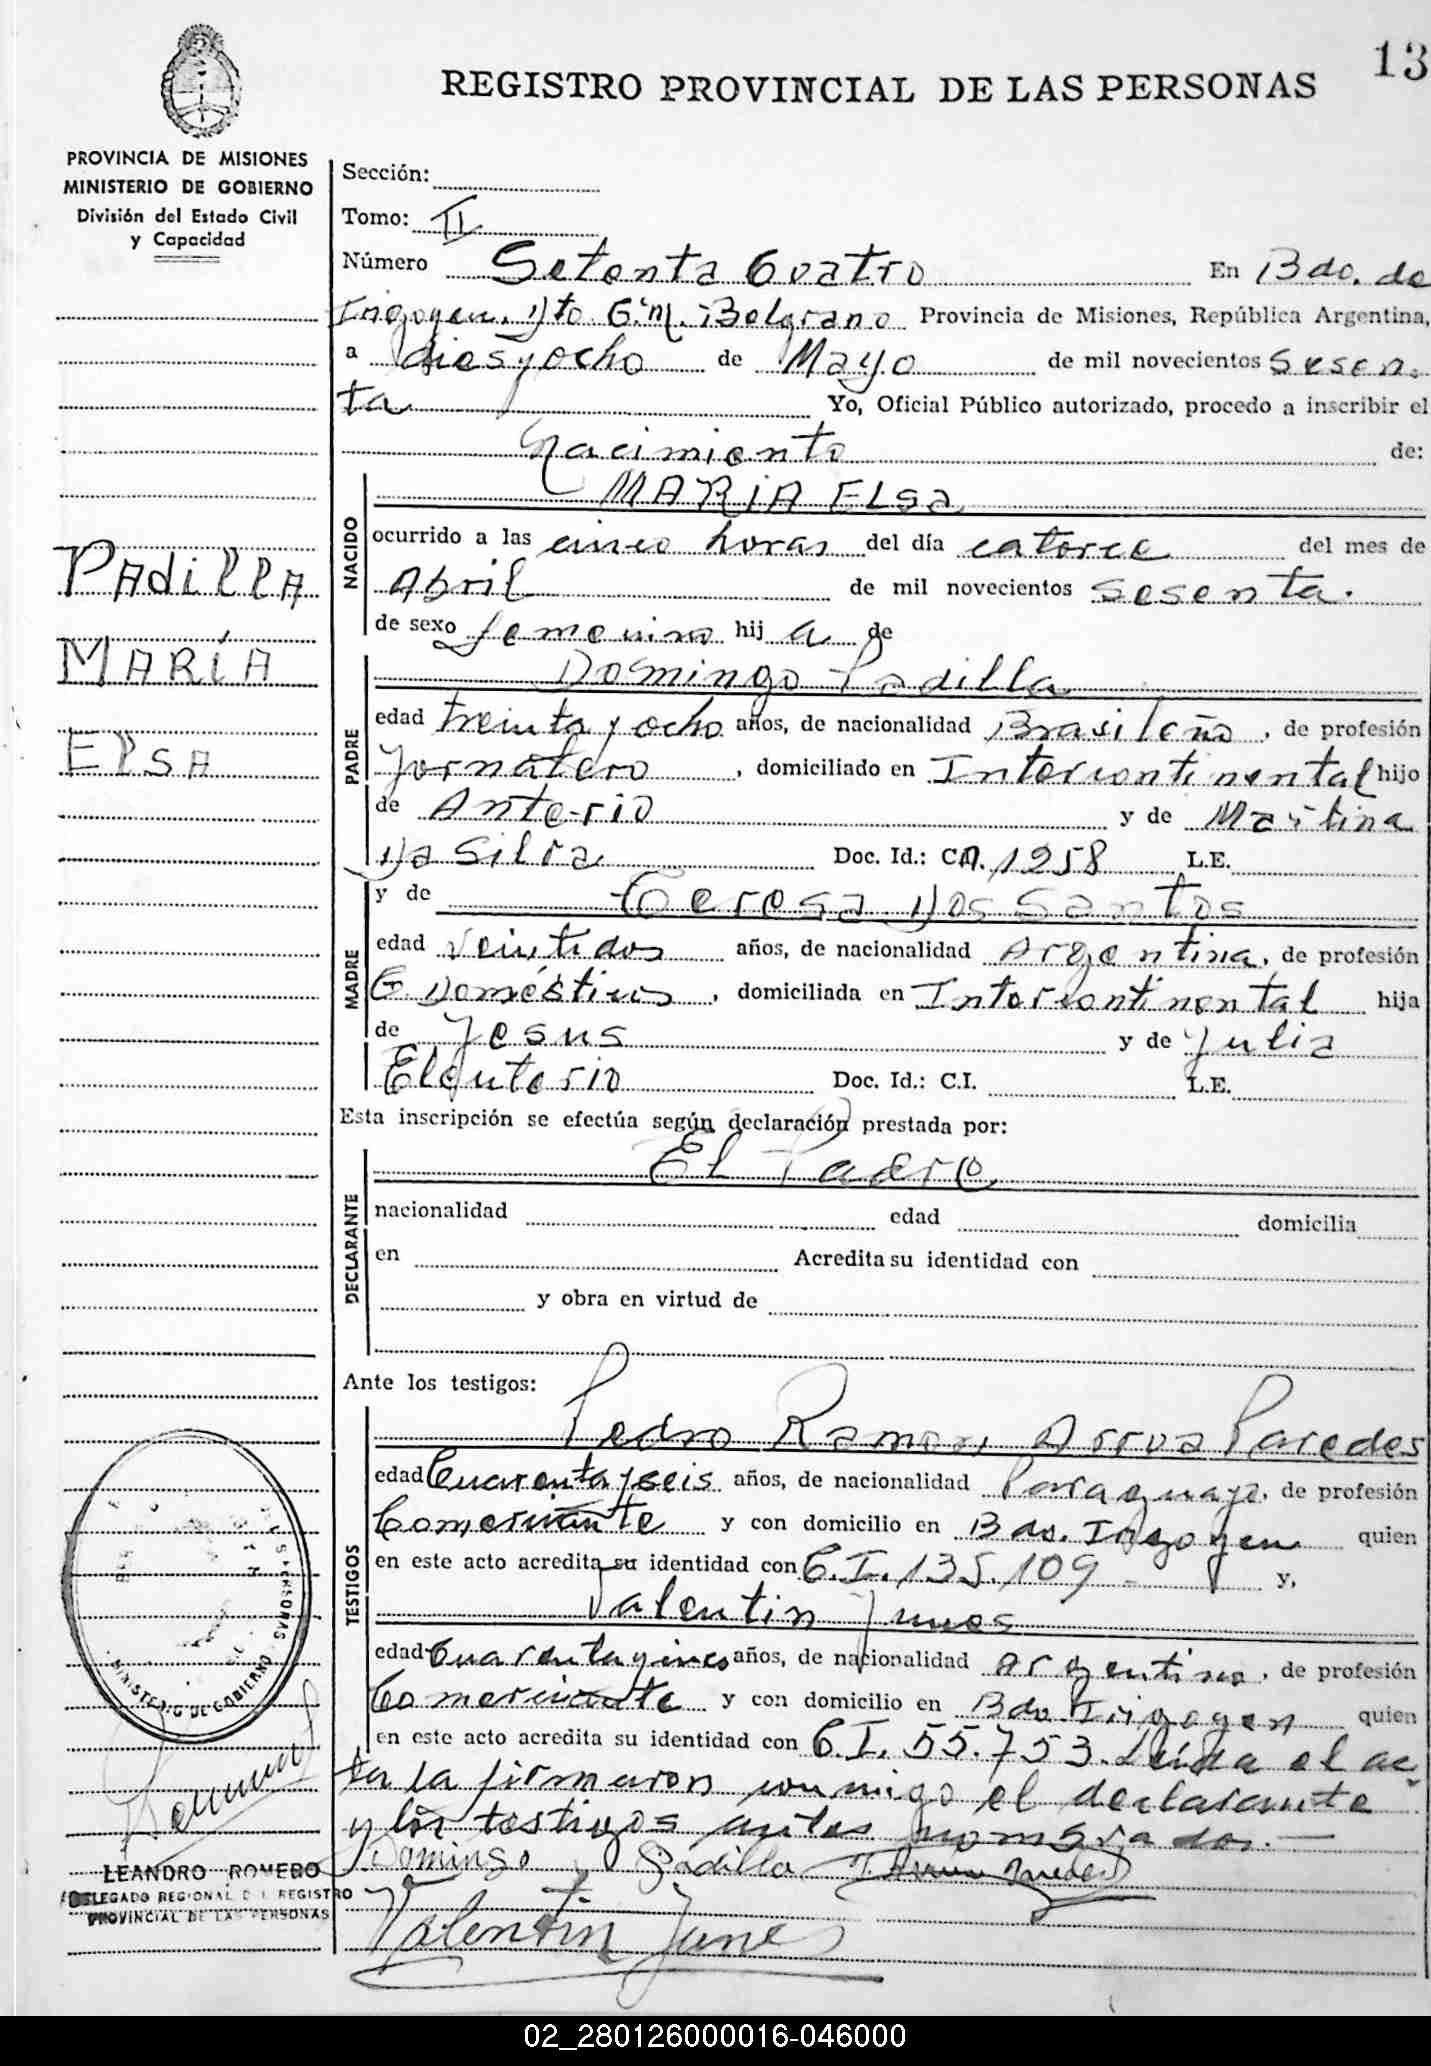 13
REGISTRO PROVINCIAL DE LAS PERSONAS
PROVINCIA DE MISIONES
MINISTERIO DE GOBIERNO
División del Estado Civil
y Capacidad
Padilla
María
Elsa
Sección:
Tomo: II
Número Setenta Cuatro En Bdo. de
Irigoyen. Dto G'ral. Belgrano Provincia de Misiones, República Argentina,
a diesyocho de Mayo de mil novecientos Sesen-
ta Yo, Oficial Público autorizado, procedo a inscribir el
Nacimiento de:
NACIDO
MARiA ELsa
ocurrido a las cinco horas del día catorce del mes de
Abril de mil novecientos sesenta.
de sexo femenino hij a de
PADRE
Domingo Padilla
edad treinta y ocho años, de nacionalidad Brasileña, de profesión
Jornalero, domiciliado en Intercontinental hijo
de Anterio y de Martina
Da Silva Doc. Id.: CM. 1258 L.E.
MADRE
y de Teresa Dos Santos
edad Veintidos años, de nacionalidad Argentina, de profesión
Q. Domésticos, domiciliada en Intercontinental hija
de Jesus y de Julia
Eleuterio Doc. Id.: C.I. L.E.
Esta inscripción se efectúa según declaración prestada por:
DECLARANTE
El Padre
nacionalidad edad domicilia
en Acredita su identidad con
y obra en virtud de
Ante los testigos:
TESTIGOS
Pedro Ramon Arrua Paredes
edad Cuarenta y seis años, de nacionalidad Paraguayo, de profesión
Comerciante y con domicilio en Bdo. Irigoyen quien
en este acto acredita su identidad con C.I. 135.109 - y,
Valentin Junes
edad Cuarenta y cinco años, de nacionalidad Argentino, de profesión
Comerciante y con domicilio en Bdo. Irigoyen quien
en este acto acredita su identidad con C.I. 55.753. Leída el ac-
ta la firmaron conmigo el declarante
y los testigos antes nombrados.—
Domingo Padilla
Valentin Junes
MINISTERIO DE GOBIERNO
LEANDRO ROMERO
DELEGADO REGIONAL DEL REGISTRO
PROVINCIAL DE LAS PERSONAS
02_280126000016-046000